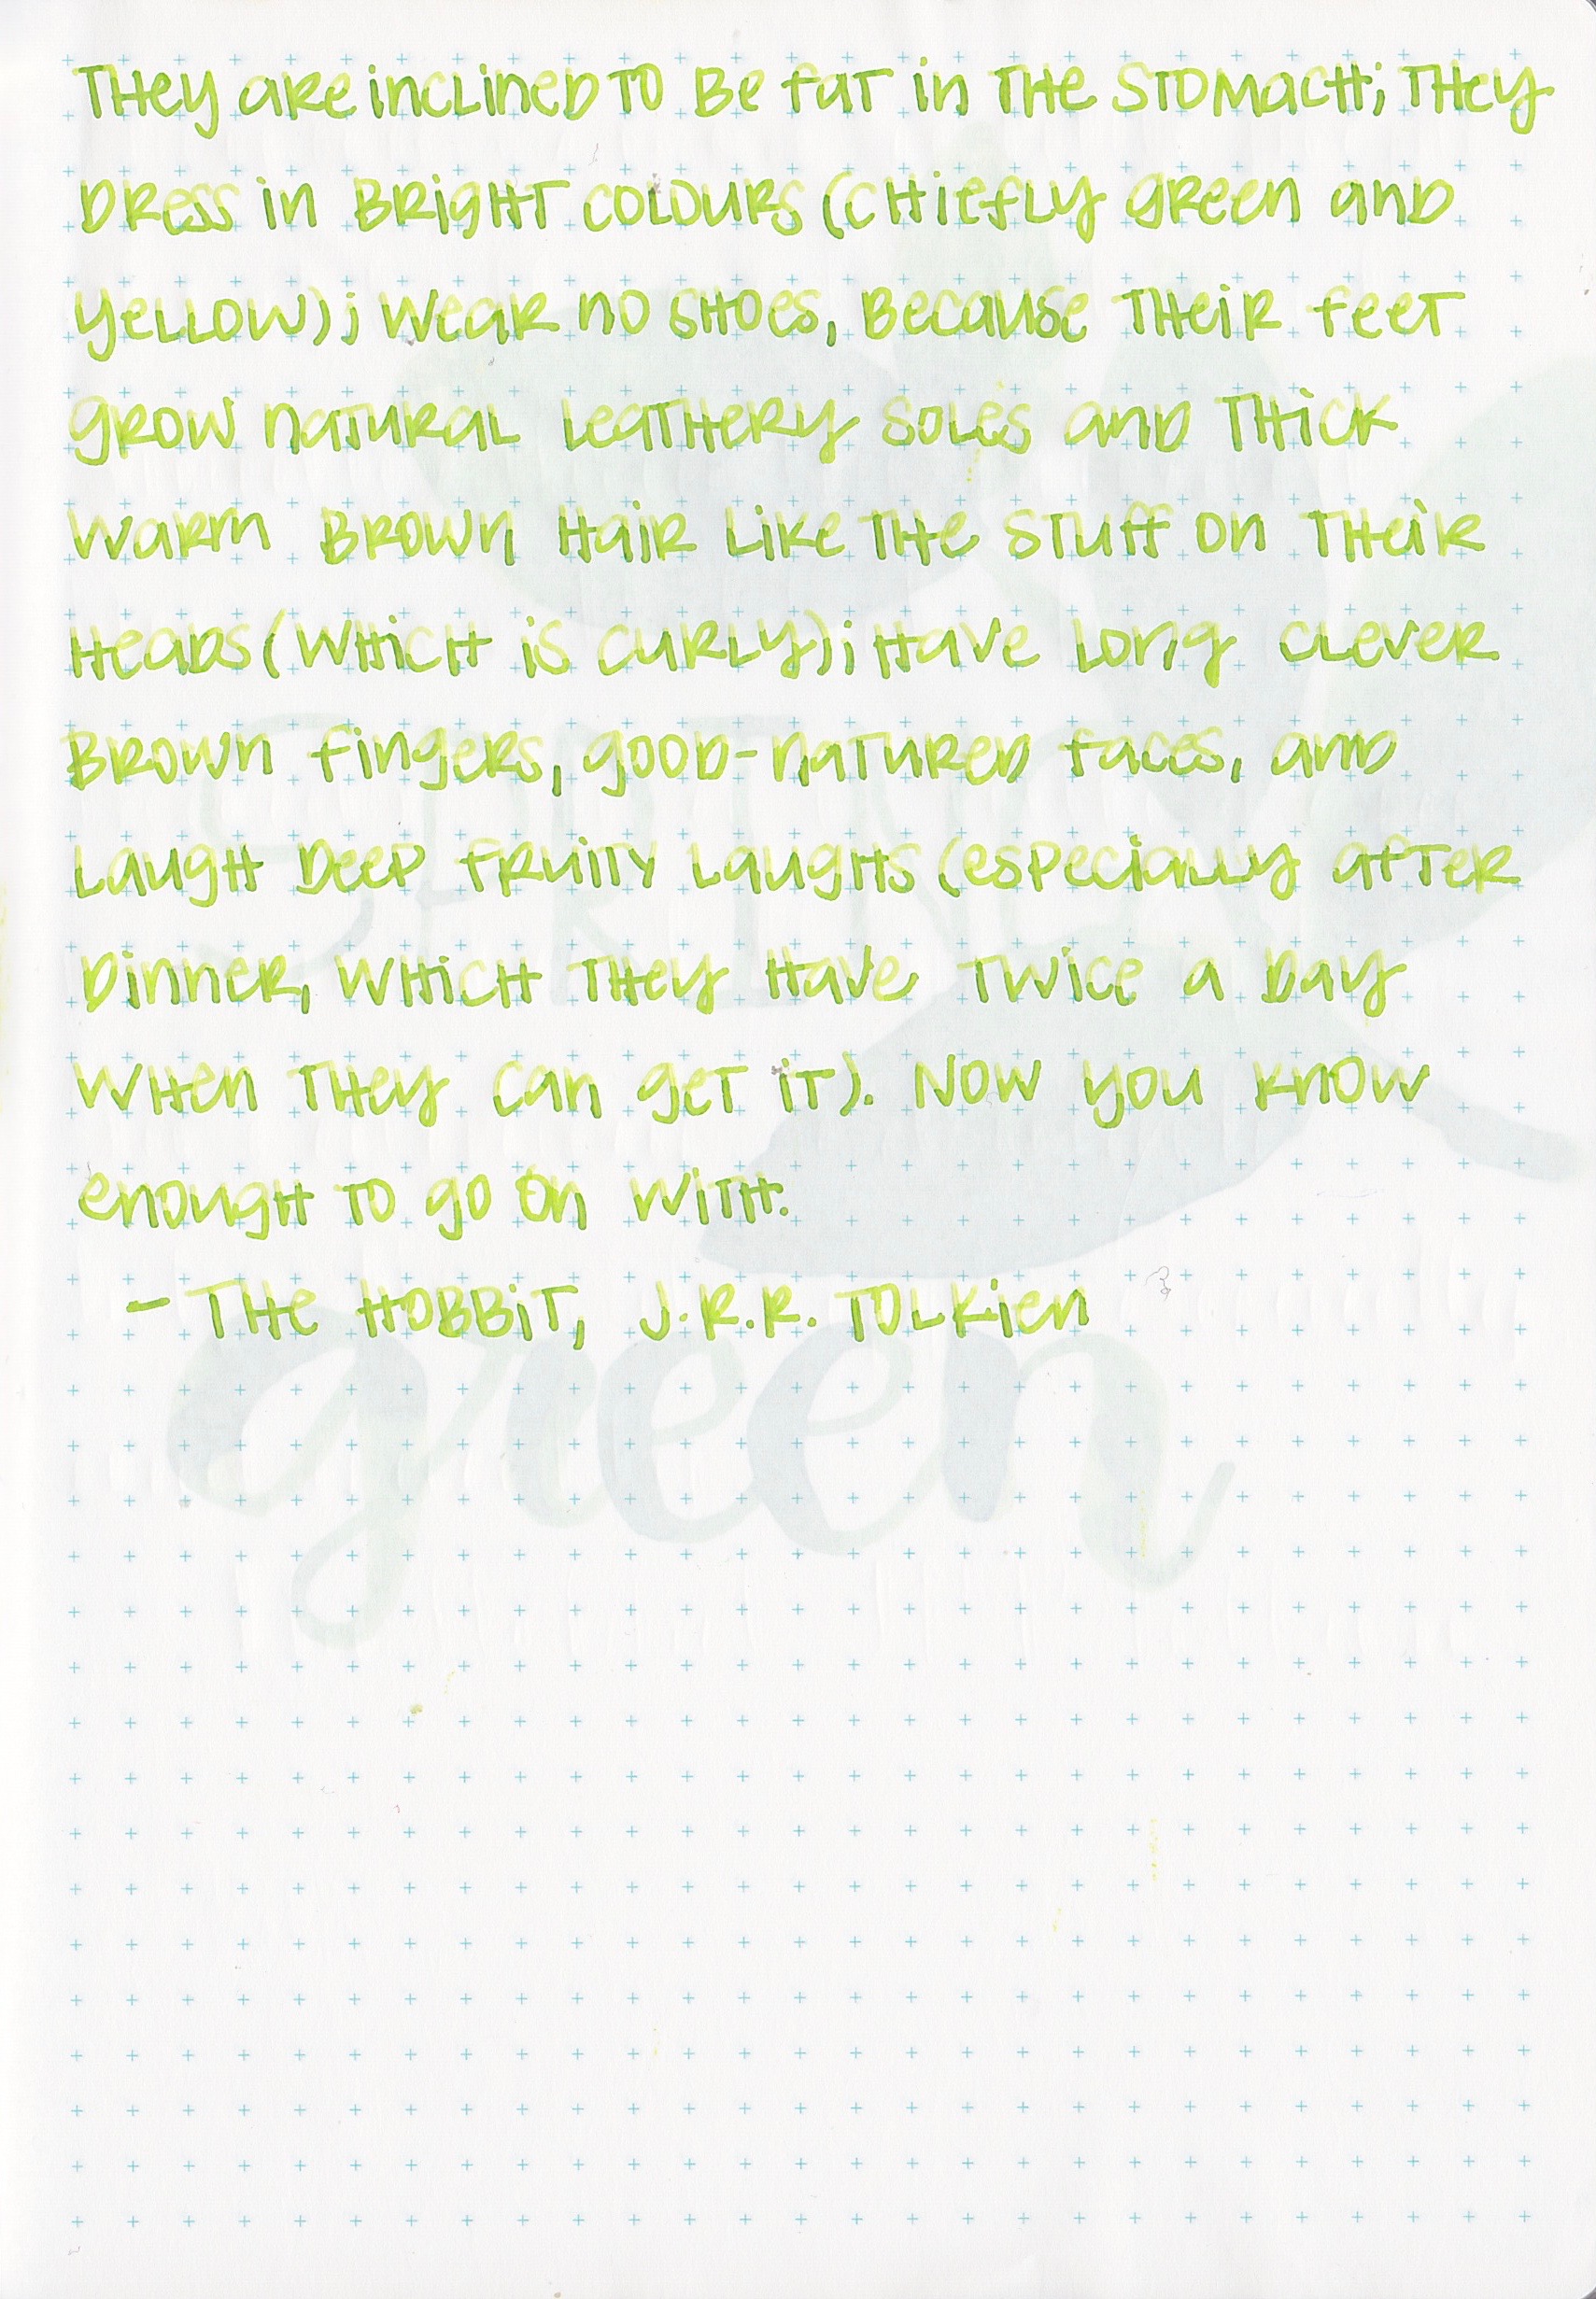 They are inclined to be fat in the stomach; they
dress in bright colours (chiefly green and
yellow); wear no shoes, because their feet
grow natural leathery soles and thick
warm brown hair like the stuff on their
heads (which is curly); have long clever
brown fingers, good-natured faces, and
laugh deep fruity laughs (especially after
dinner, which they have twice a day
when they can get it). Now you know
enough to go on with.
- The Hobbit, J.R.R. Tolkien
SPRING
green